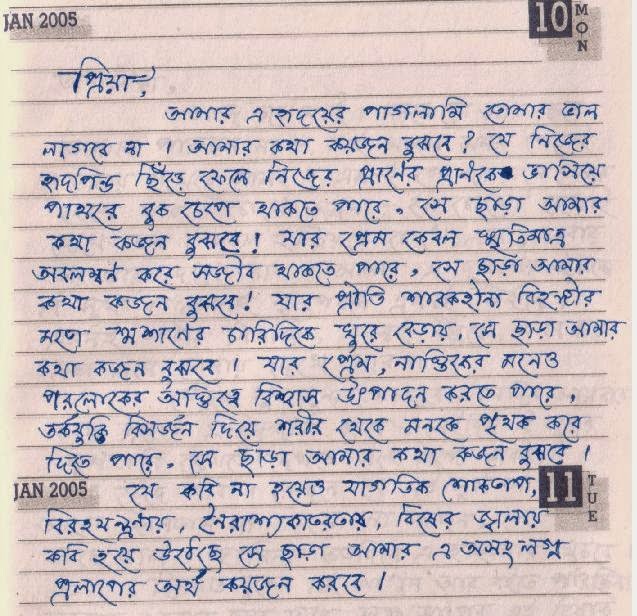 JAN 2005
10
MON
প্রিয়া,
আমার এ হৃদয়ের পাগলামি তোমার ভাল
লাগবে না । আমার কথা কয়জন বুঝবে? যে নিজের
হৃদপিন্ড ছিঁড়ে ফেলে নিজের প্রাণের প্রাণকে ভাসিয়ে
পাথরে বুক চেপে থাকতে পারে, সে ছাড়া আমার
কথা কজন বুঝবে! যার প্রেম কেবল স্মৃতিমাত্র
অবলম্বন করে সজীব থাকতে পারে, সে ছাড়া আমার
কথা কজন বুঝবে! যার প্রীতি শাবকহীনা বিহঙ্গীর
মতো শ্মশানের চারিদিকে ঘুরে বেড়ায়, সে ছাড়া আমার
কথা কজন বুঝবে । যার প্রেম, নাস্তিকের মনেও
পরলোকের অস্তিত্বে বিশ্বাস উৎপাদন করতে পারে,
তর্কযুক্তি বিসর্জন দিয়ে শরীর থেকে মনকে পৃথক করে
দিতে পারে, সে ছাড়া আমার কথা কজন বুঝবে ।
JAN 2005
11
TUE
যে কবি না হয়েও যাগতিক শোকতাপ,
বিরহযন্ত্রণায়, নৈরাশ্যেকাতরতায়, বিষের জ্বালায়
কবি হয়ে উঠেছে সে ছাড়া আমার এ অসংলগ্ন
প্রলাপের অর্থ কয়জন করবে ।